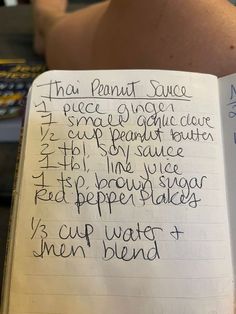 Thai Peanut Sauce
1 piece ginger
1 small garlic clove
1/2 cup peanut butter
2 tbl. soy sauce
1 tbl. lime juice
1 tsp. brown sugar
Red pepper flakes
1/3 cup water +
then blend